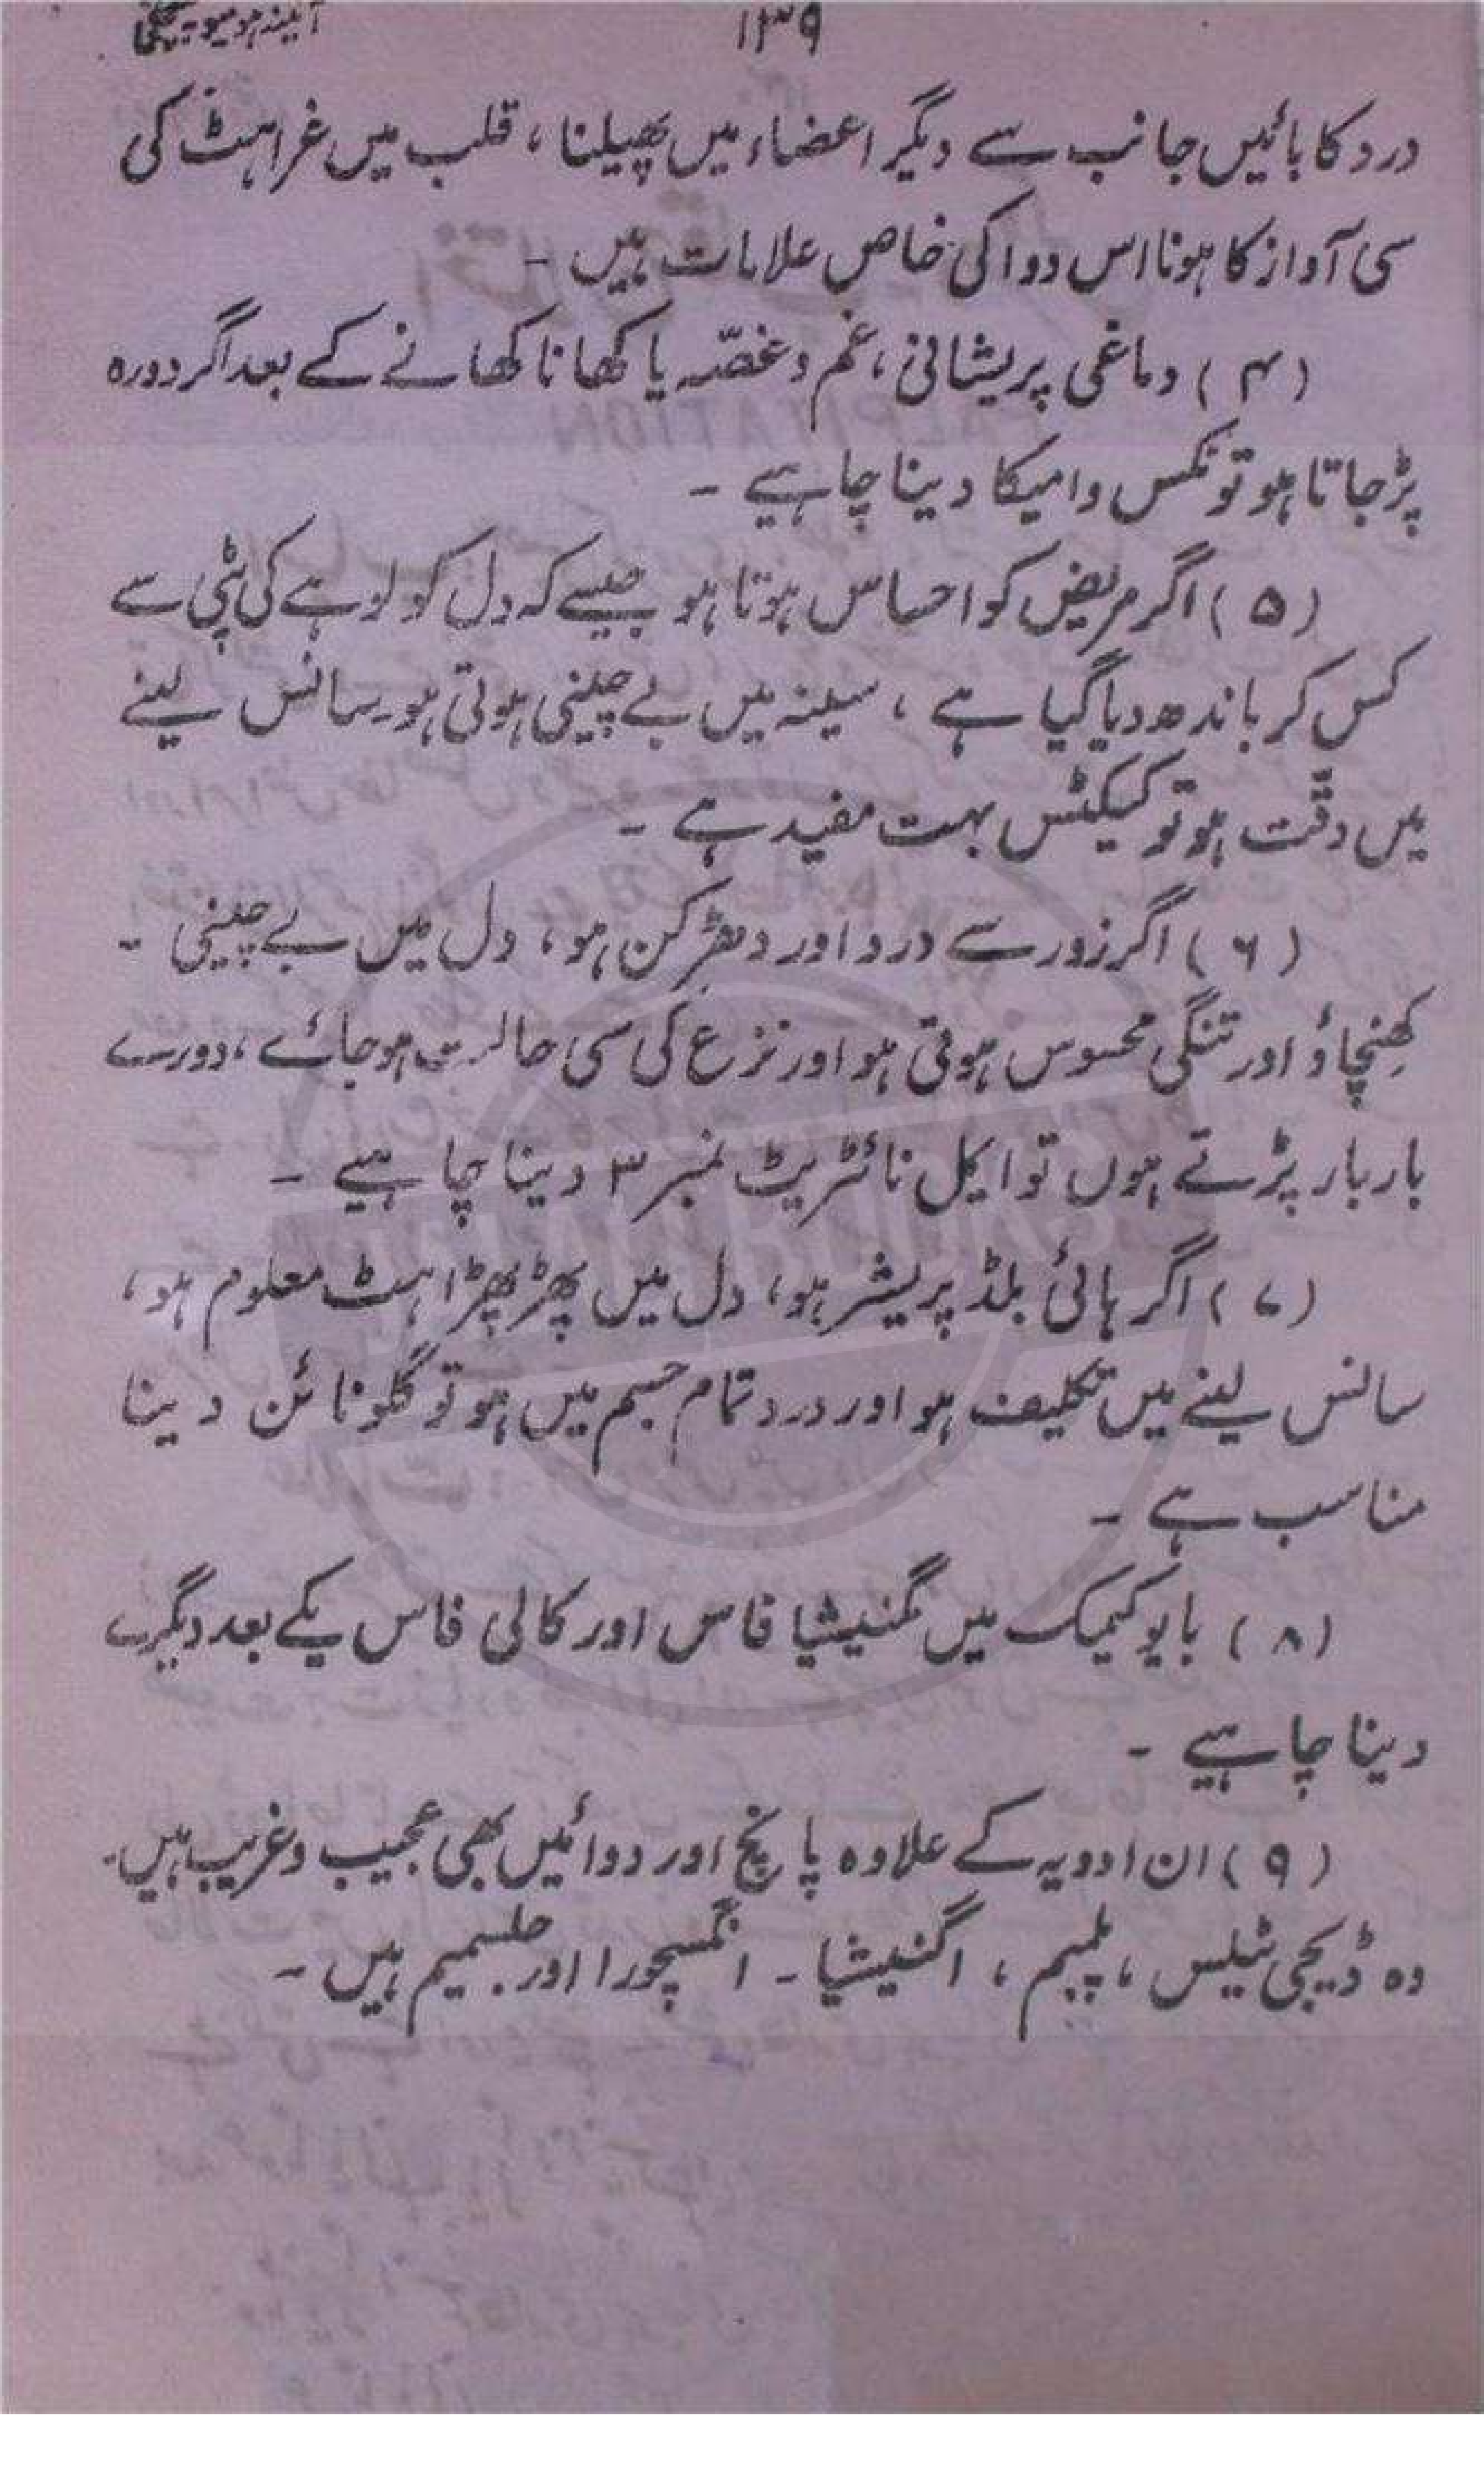 آئینہ ہومیوپیتھی ۱۳۹
درد کا بائیں جانب سے دیگر اعضاء میں پھیلنا، قلب میں غراہٹ کی
سی آواز کا ہونا اس دوا کی خاص علامات ہیں -
(۴) دماغی پریشانی، غم و غصّہ یا کھانا کھانے کے بعد اگر دورہ
پڑ جاتا ہو تو نکس وامیکا دینا چاہیے -
(۵) اگر مریض کو احساس ہوتا ہو جیسے کہ دل کو لوہے کی پٹی سے
کس کر باندھ دیا گیا ہے، سینہ میں بے چینی ہوتی ہو۔ سانس لینے
میں دقّت ہو تو کیکٹس بہت مفید ہے -
(۶) اگر زور سے درد اور دھڑکن ہو، دل میں بے چینی -
کھنچاؤ اور تنگی محسوس ہوتی ہو اور نزع کی سی حالت ہو جائے، دورے
بار بار پڑتے ہوں تو ایمل نائٹریٹ نمبر ۳ دینا چاہیے -
(۷) اگر ہائی بلڈ پریشر ہو، دل میں پھڑپھڑاہٹ معلوم ہو،
سانس لینے میں تکلیف ہو اور درد تمام جسم میں ہو تو گلونائن دینا
مناسب ہے -
(۸) بایوکیمک میں مگنیشیا فاس اور کالی فاس یکے بعد دیگرے
دینا چاہیے -
(۹) ان ادویہ کے علاوہ پانچ اور دوائیں بھی عجیب و غریب ہیں۔
وہ ڈیجی ٹیلس، پلمبم، اگنیشیا - انگسچورا اور جلسمیم ہیں -